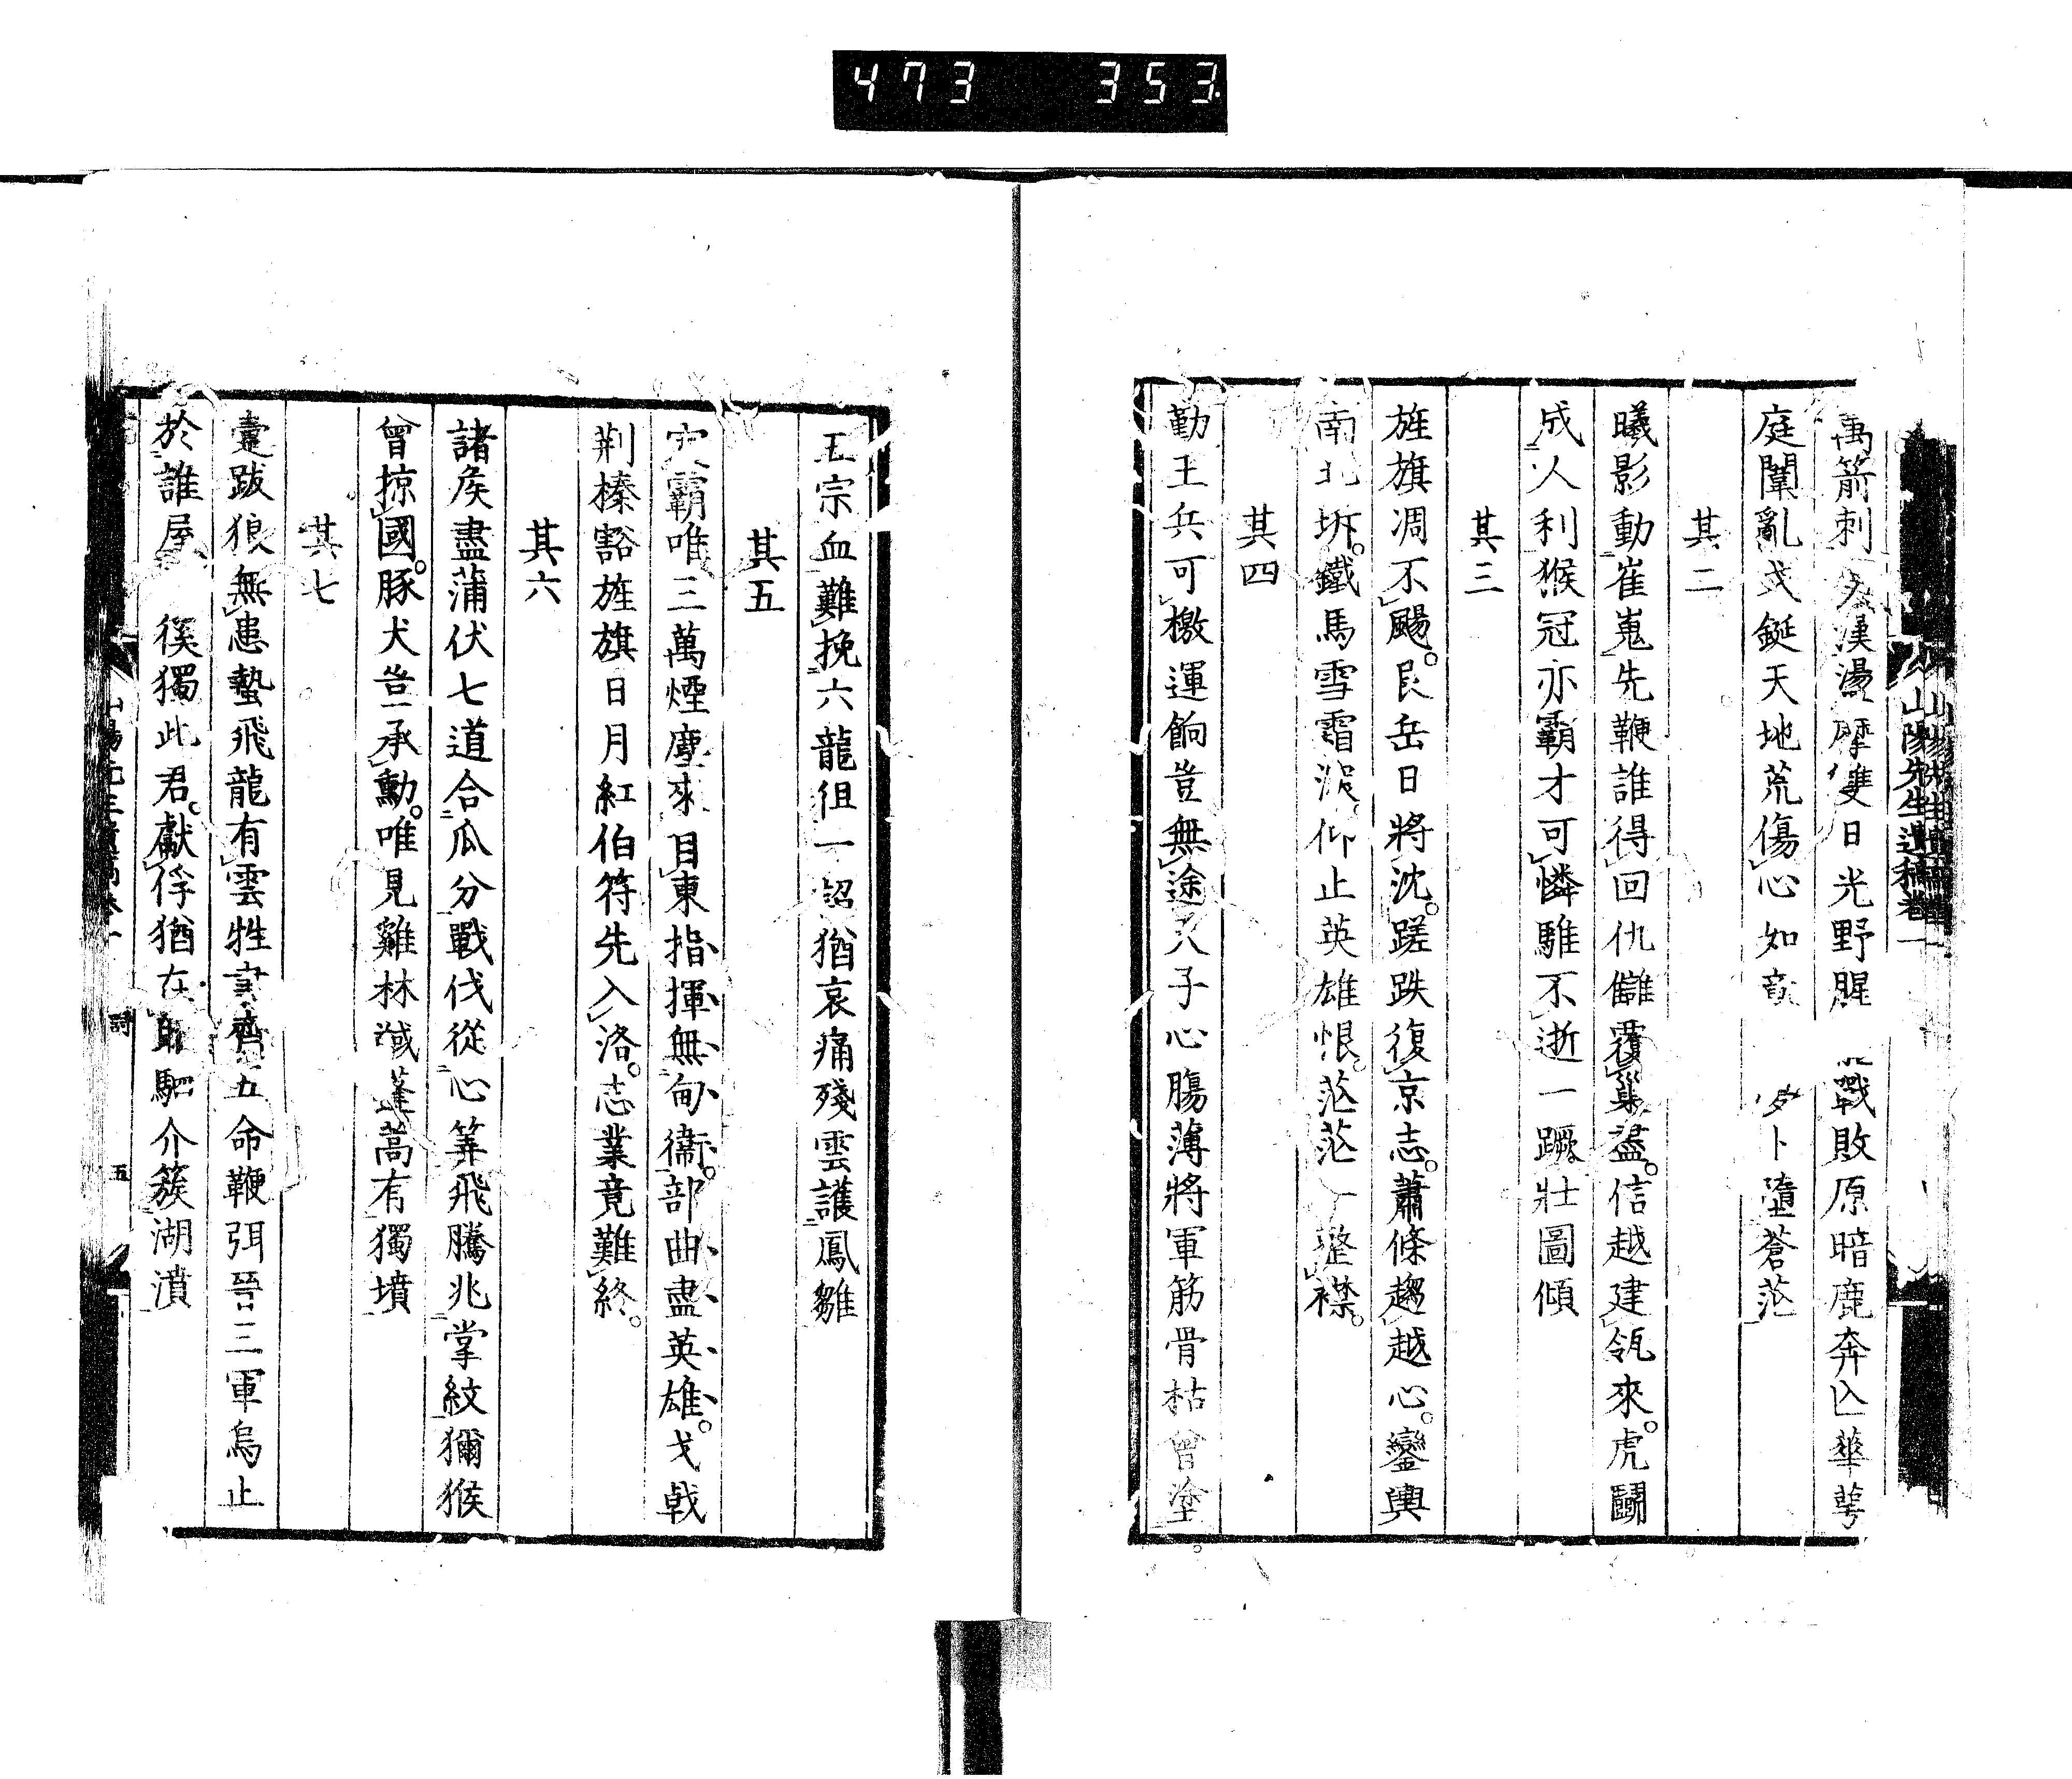 473 353
山陽先生遺稿卷一
萬箭刺 漢湯摩雙日光野腥 戰敗原暗鹿奔入華萼
庭闈亂戈鋋天地荒傷心如 卜墮蒼茫
其二
曦影動崔嵬先鞭誰得回仇讎覆巢盡信越建瓴來虎鬭
成人利猴冠亦霸才可憐騅不逝一蹶壯圖傾
其三
旌旗凋不颺艮岳日將沈蹉跌復京志蕭條趨越心鑾輿
南北坼鐵馬雪霜深仰止英雄恨茫茫一整襟
其四
勤王兵可檄運餉豈無途天子心膓薄將軍筋骨枯曾塗
王宗血難挽六龍徂一詔猶哀痛殘雲護鳳雛
其五
定霸唯三萬煙塵來目東指揮無甸衞部曲盡英雄戈戟
荆榛豁旌旗日月紅伯符先入洛志業竟難終
其六
諸矦盡蒲伏七道合瓜分戰伐從心筭飛騰兆掌紋獼猴
曾掠國豚犬豈承勳唯見雞林滅蓬蒿有獨墳
其七
疐跋狼無患蟄飛龍有雲牲書齊五命鞭弭晉三軍烏止
於誰屋 徯獨此君獻俘猶在 駟介簇湖濆
詩 五